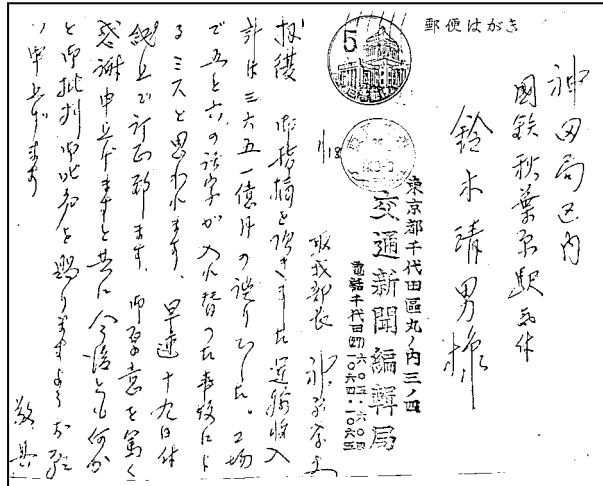 郵便はがき
5
神田局区内
國鉄秋葉原駅気付
鈴木靖男様
東京都千代田區丸ノ内三ノ四
交通新聞編輯局
電話千代田(27)
取材部長
1/18
拝復 御指摘を頂きました運輸收入
計は三六五一億円の誤りでした。工場
で五と六の活字が入れ替った事故によ
るミスと思われます。早速十九日付
紙上で訂正致します。御厚意を篤く
感謝申上げますと共に今後とも何か
と御批判御叱声を賜りますようお願
い申上げます
敬具